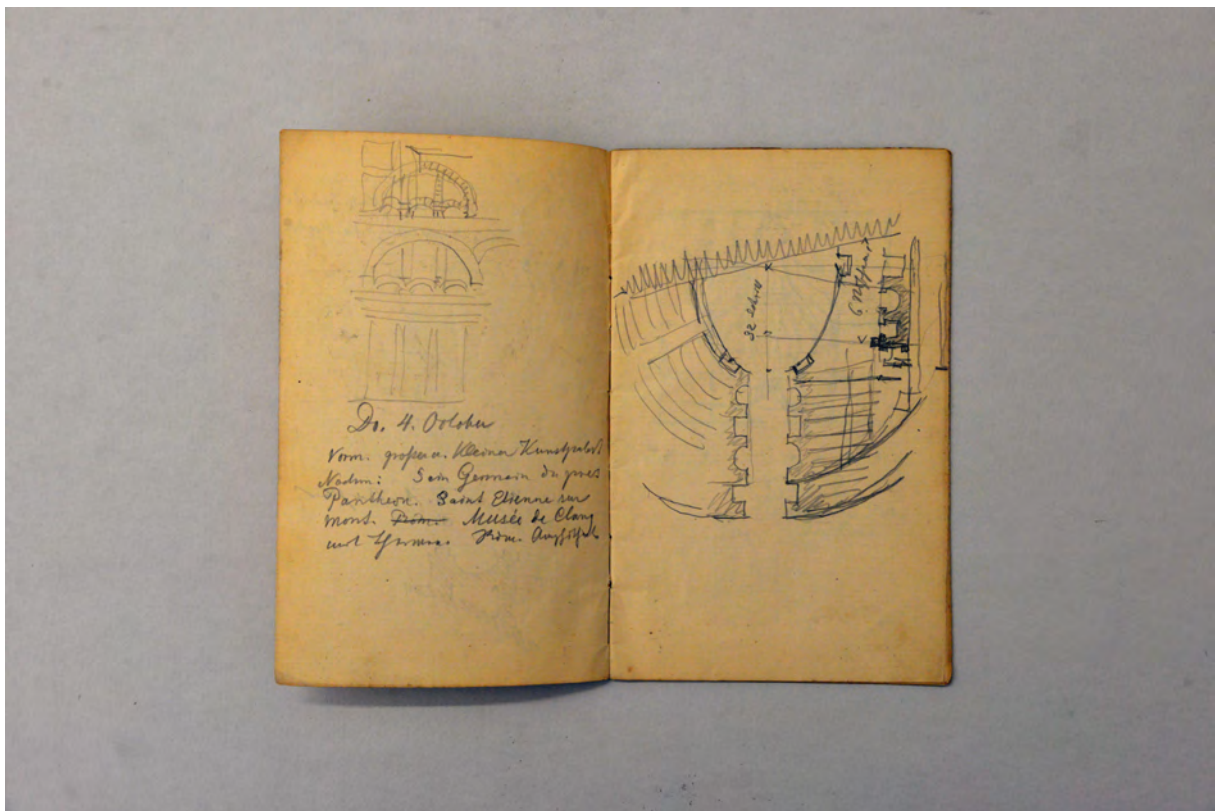 Do. 4. October
Vorm. großer u. kleiner Kunstpalast
Nachm: Sain Germain du pres
Pantheon. Saint Etienne sur
mont. Röm. Musée de Cluny
und Thermen. Röm.
32 Schritt